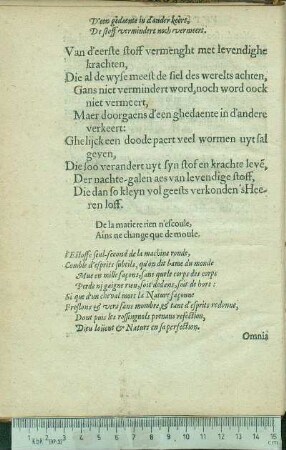 D'een gedaente in d'ander keert,
De stoff vermindert noch vermeert.
Van d'eerste stoff vermenght met levendighe
krachten,
Die al de wyse meest de siel des werelts achten,
Gans niet vermindert word, noch word oock
niet vermeert,
Maer doorgaens d'een ghedaente in d'andere
verkeert:
Ghelijck een doode paert veel wormen uyt sal
geven,
Die soo verandert uyt syn stof en krachte levē,
Der nachte-galen aes van levendige stoff,
Die dan so kleyn vol geests verkonden 's Hee-
ren loff.
De la matiere rien n'escoule,
Ains ne change que de moule.
l'Estoffe seul-second de la machine ronde,
Comble d'esprits subtils, qu'on dit l'ame du monde
Mue en mille façons, sans quele corps des corps
Perde ni gaigne rien, soit dedans, soit de hors:
Si que d'un cheval mort la Nature façonne
Freslons & vers sans nombre, & tant d'esprits redonne,
Dont puis les rossignols prenans refection,
Dieu loüent & Nature en sa perfection.
Omnia